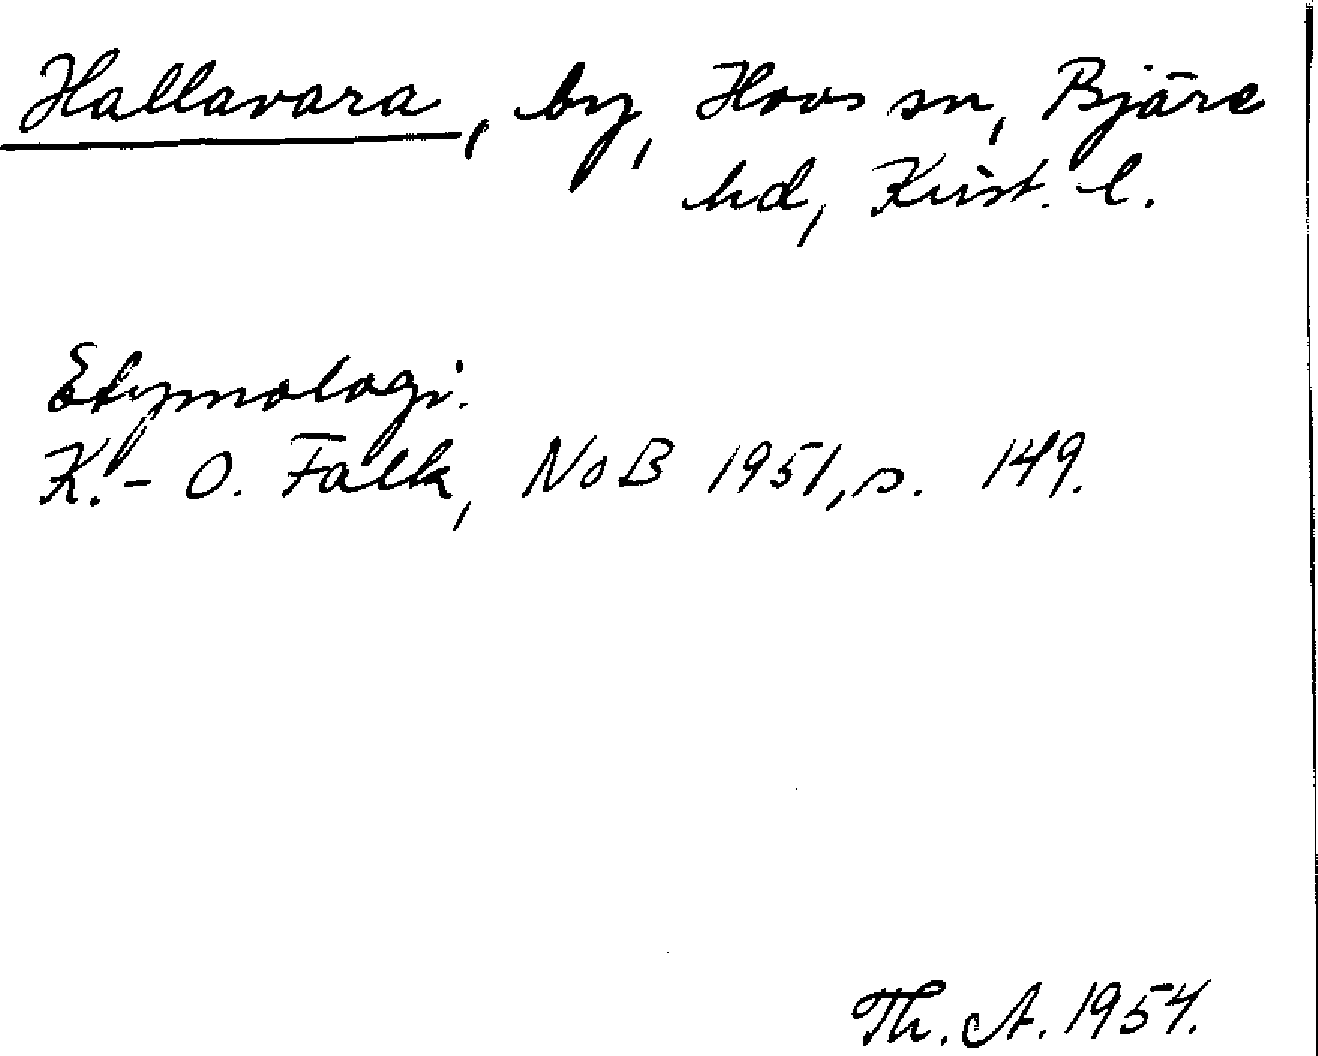 Hallavara, by, Hovs sn, Bjäre
hd, Krist. l.
Etymologi.
K.-O. Falk, NoB 1951, s. 149.
Th. A. 1954.